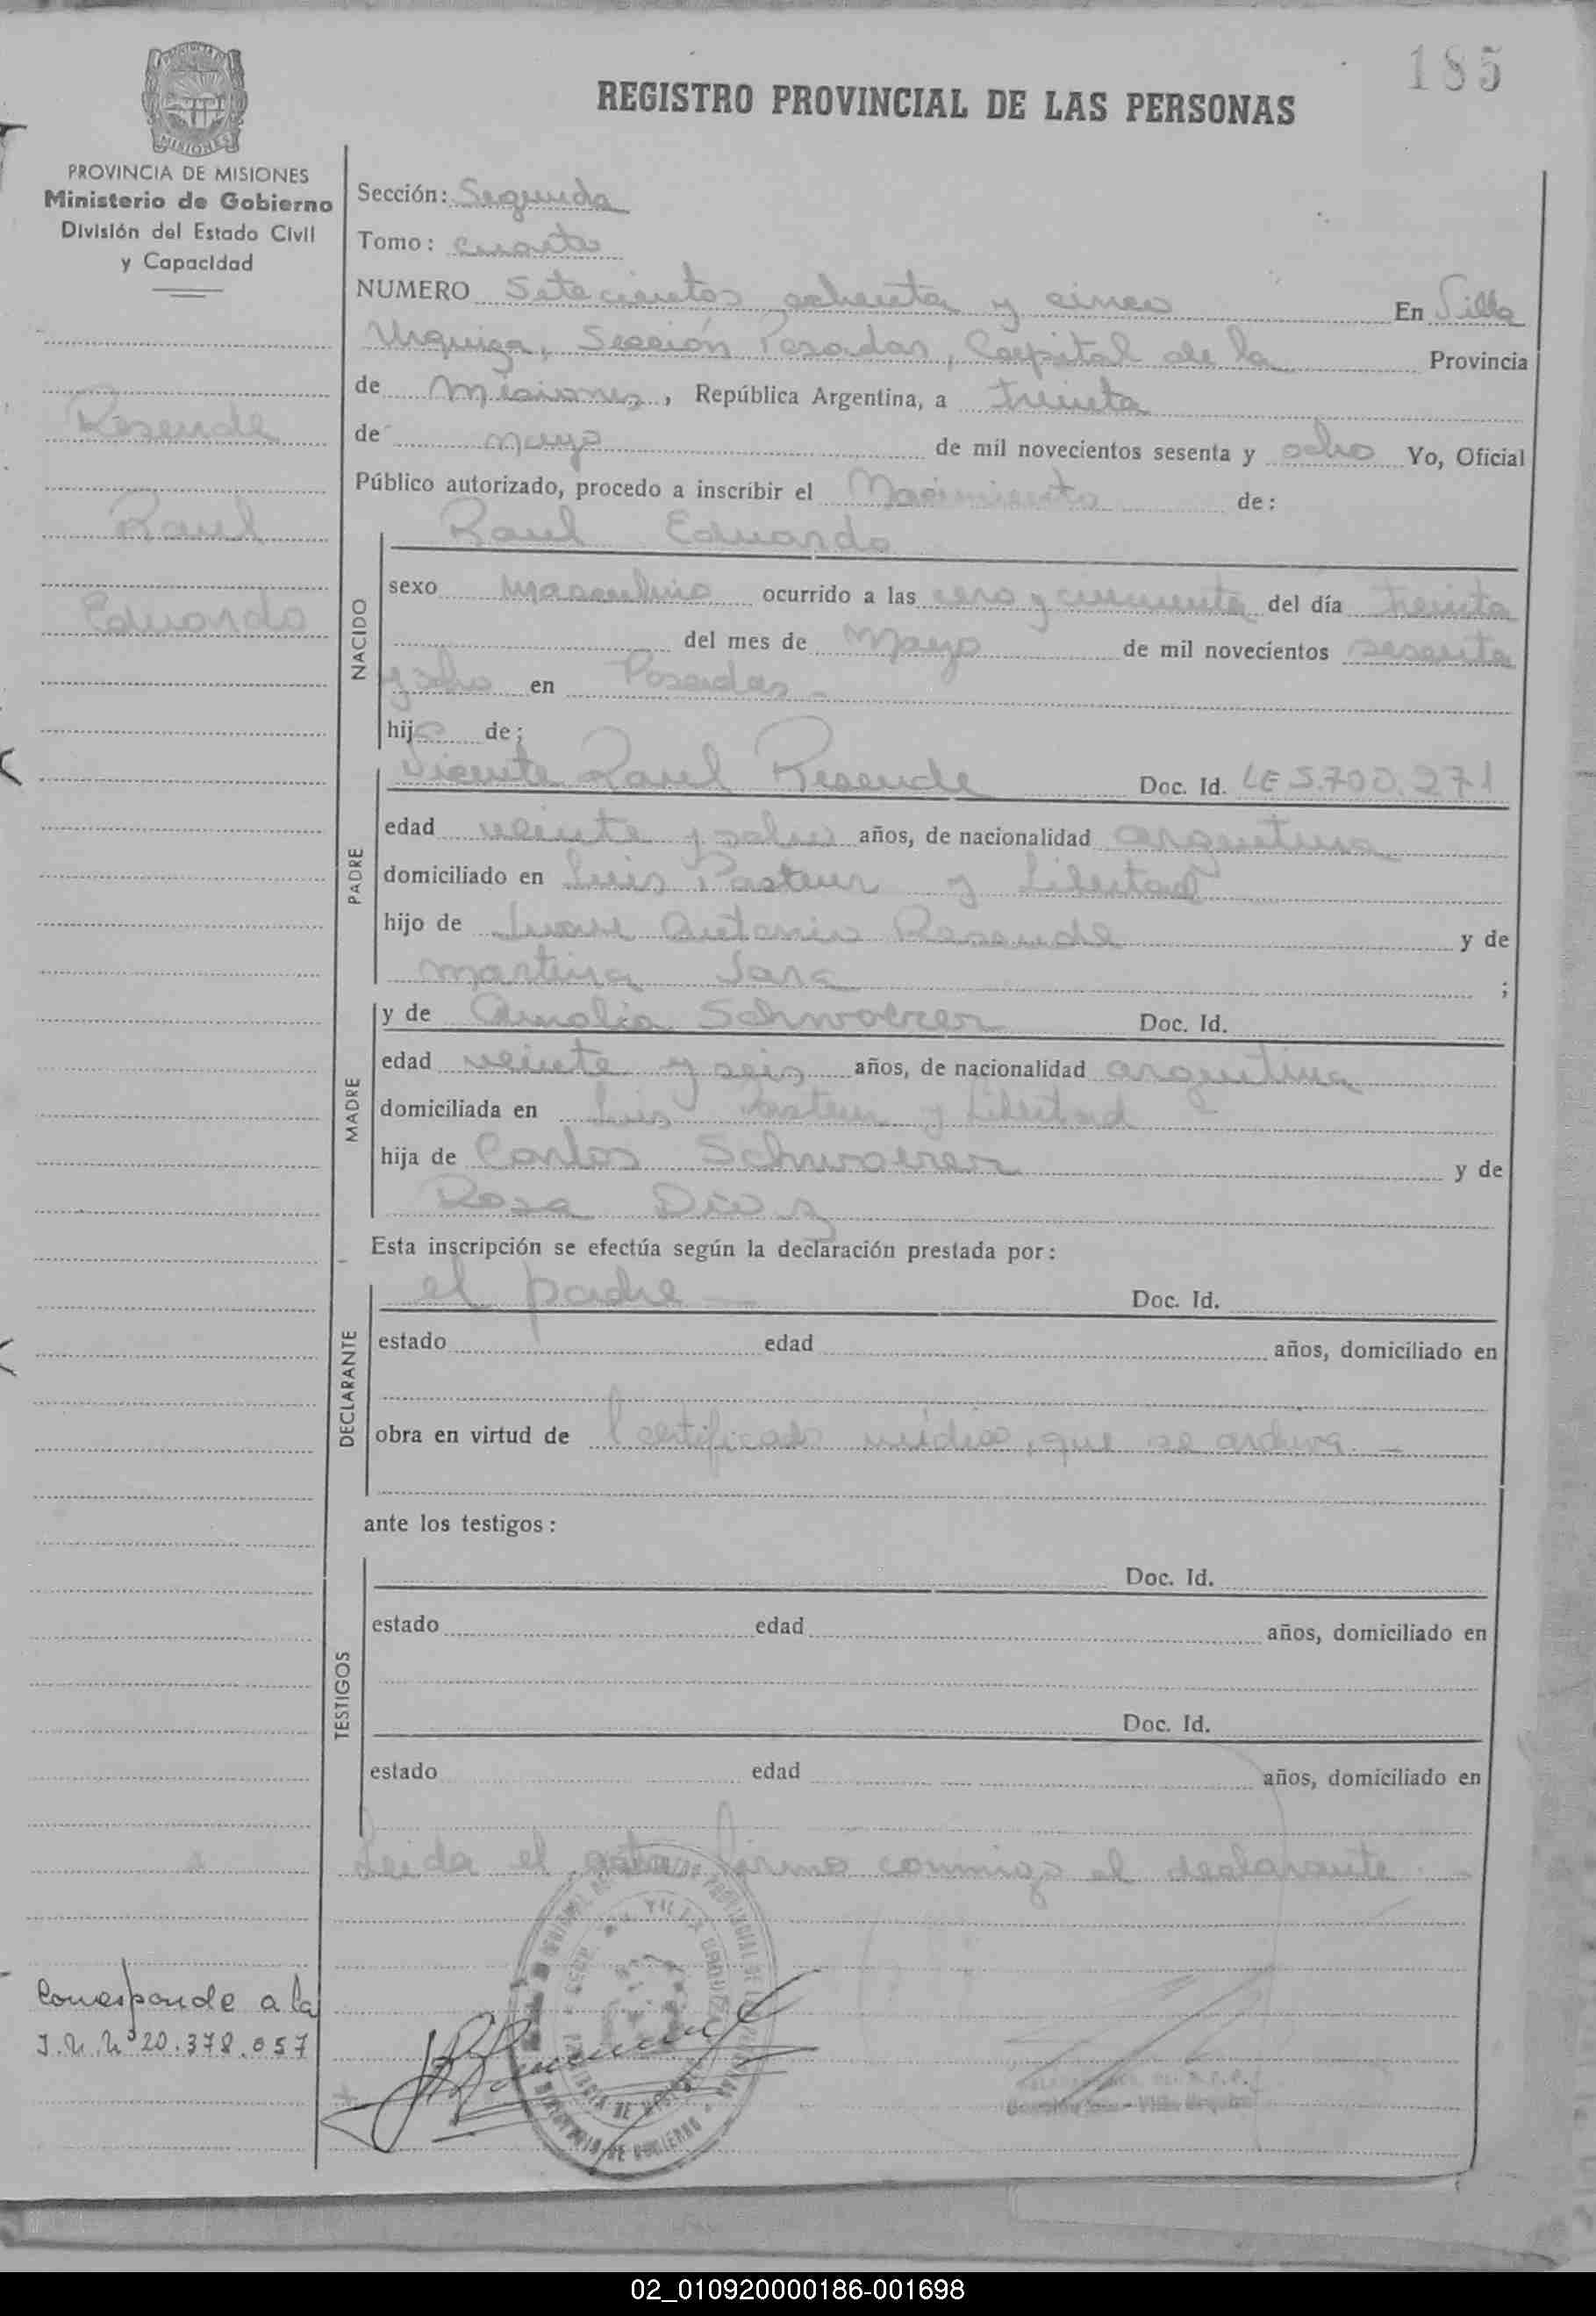 185
REGISTRO PROVINCIAL DE LAS PERSONAS
PROVINCIA DE MISIONES
Ministerio de Gobierno
División del Estado Civil
y Capacidad
Resende
Raul
Eduardo
Sección: Segunda
Tomo: cuarto
NUMERO Setecientos ochenta y cinco En Villa
Urquiza, Sección Posadas, Capital de la Provincia
de Misiones, República Argentina, a treinta
de mayo de mil novecientos sesenta y ocho Yo, Oficial
Público autorizado, procedo a inscribir el Nacimiento de:
NACIDO
Raul Eduardo
sexo Masculino ocurrido a las cero y cincuenta del día treinta
del mes de Mayo de mil novecientos sesenta
y ocho en Posadas -
hijo de:
PADRE
Vicente Raul Resende Doc. Id. LE 5.700.271
edad veinte y ocho años, de nacionalidad argentina
domiciliado en Luis Pasteur y Libertad
hijo de Juan Antonio Resende y de
Martina Sara ;
MADRE
y de Amalia Doc. Id.
edad veinte y seis años, de nacionalidad argentina
domiciliada en Luis Pasteur y Libertad
hija de Carlos y de
Rosa
Esta inscripción se efectúa según la declaración prestada por:
DECLARANTE
el padre — Doc. Id.
estado edad años, domiciliado en
obra en virtud de certificado médico, que se archiva. —
ante los testigos:
TESTIGOS
Doc. Id.
estado edad años, domiciliado en
Doc. Id.
estado edad años, domiciliado en
Leida el acta firma conmigo el declarante. -
Corresponde a la
20.378.057
02_010920000186-001698